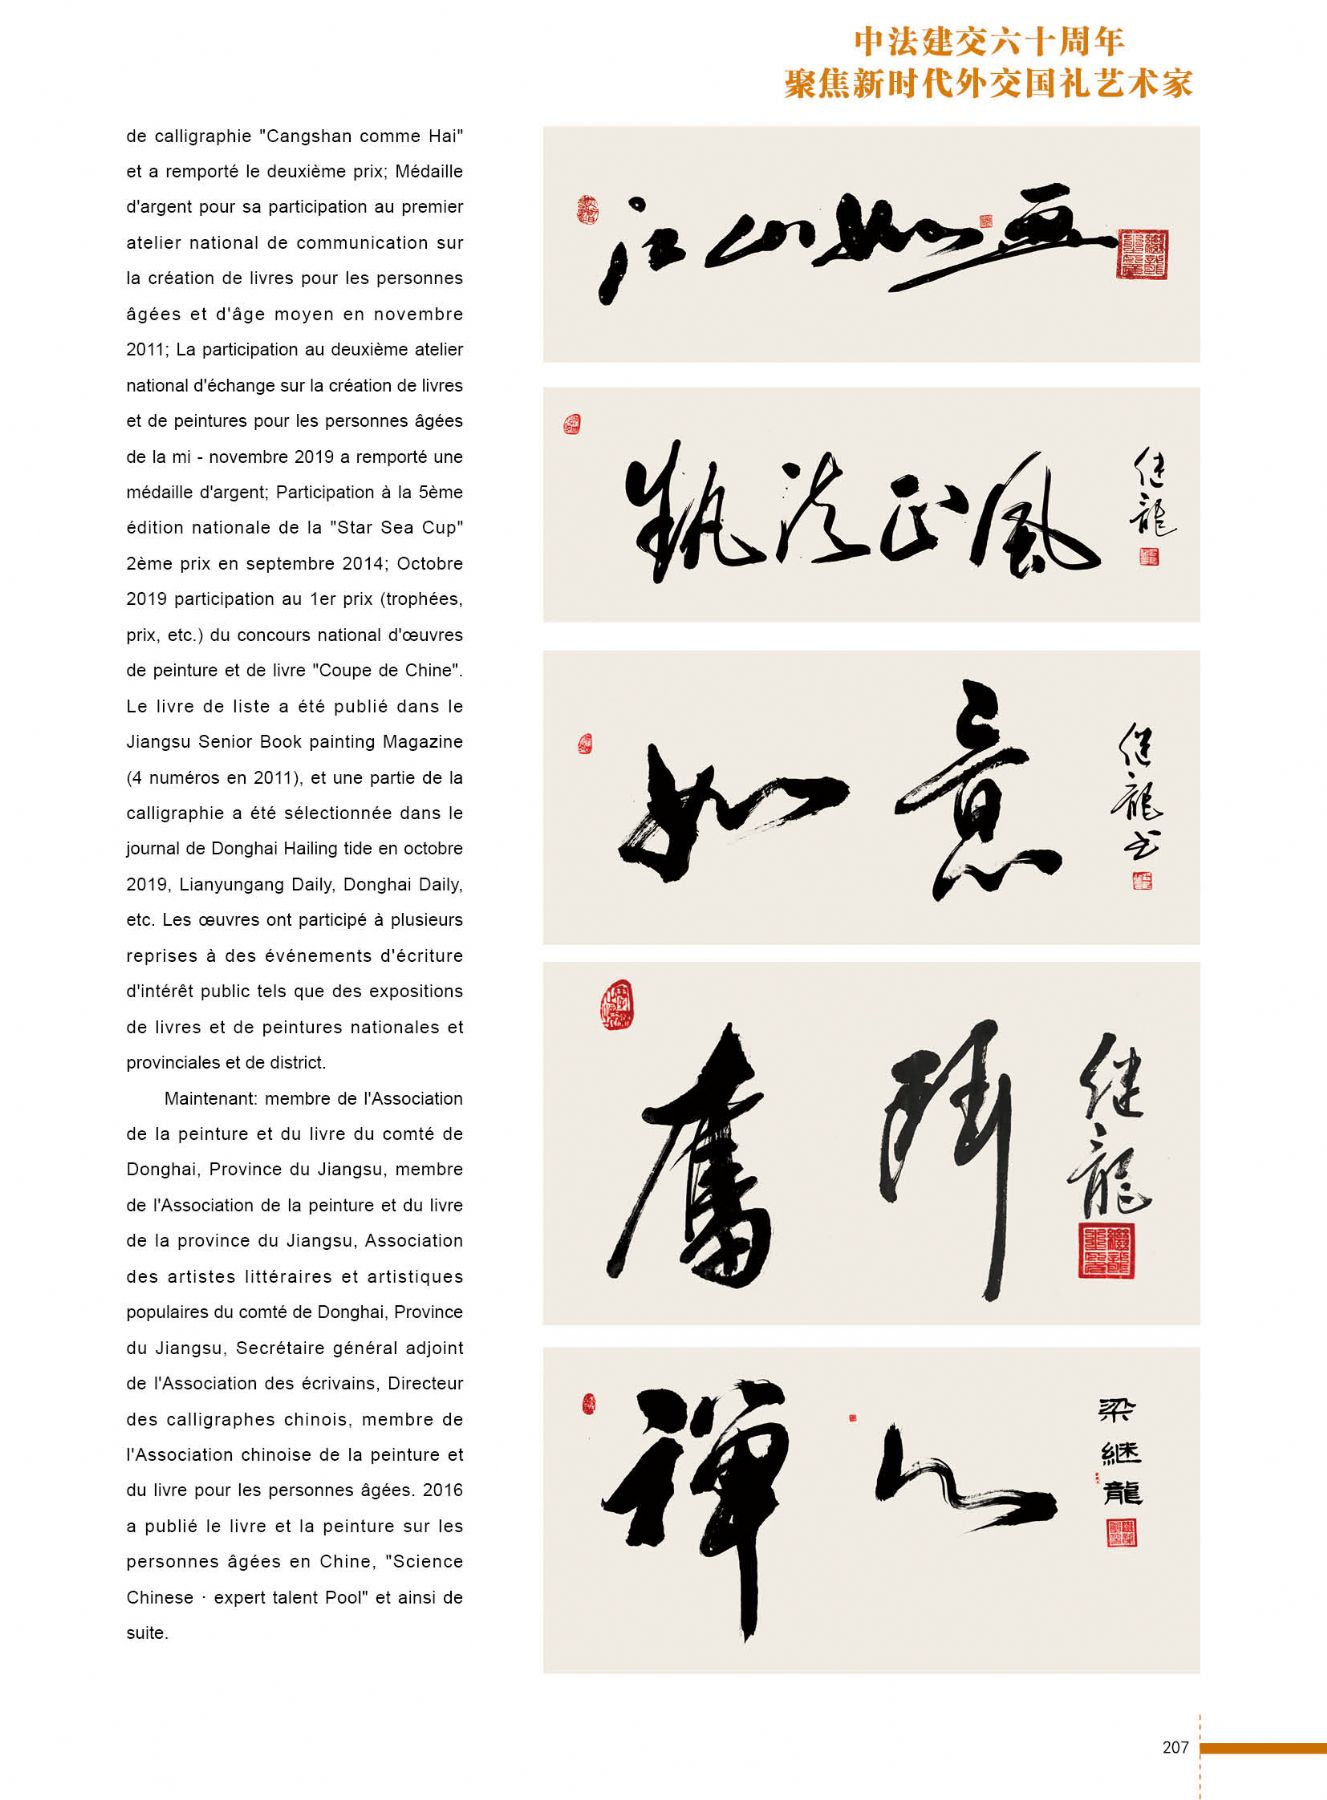 中法建交六十周年
聚焦新时代外交国礼艺术家
de calligraphie "Cangshan comme Hai"
et a remporté le deuxième prix; Médaille
d'argent pour sa participation au premier
atelier national de communication sur
la création de livres pour les personnes
âgées et d'âge moyen en novembre
2011; La participation au deuxième atelier
national d'échange sur la création de livres
et de peintures pour les personnes âgées
de la mi - novembre 2019 a remporté une
médaille d'argent; Participation à la 5ème
édition nationale de la "Star Sea Cup"
2ème prix en septembre 2014; Octobre
2019 participation au 1er prix (trophées,
prix, etc.) du concours national d'œuvres
de peinture et de livre "Coupe de Chine".
Le livre de liste a été publié dans le
Jiangsu Senior Book painting Magazine
(4 numéros en 2011), et une partie de la
calligraphie a été sélectionnée dans le
journal de Donghai Hailing tide en octobre
2019, Lianyungang Daily, Donghai Daily,
etc. Les œuvres ont participé à plusieurs
reprises à des événements d'écriture
d'intérêt public tels que des expositions
de livres et de peintures nationales et
provinciales et de district.
Maintenant: membre de l'Association
de la peinture et du livre du comté de
Donghai, Province du Jiangsu, membre
de l'Association de la peinture et du livre
de la province du Jiangsu, Association
des artistes littéraires et artistiques
populaires du comté de Donghai, Province
du Jiangsu, Secrétaire général adjoint
de l'Association des écrivains, Directeur
des calligraphes chinois, membre de
l'Association chinoise de la peinture et
du livre pour les personnes âgées. 2016
a publié le livre et la peinture sur les
personnes âgées en Chine, "Science
Chinese · expert talent Pool" et ainsi de
suite.
江山如画
执法正风
继龙
如意
继龙书
奮鬥
继龙
禅心
梁继龍
207